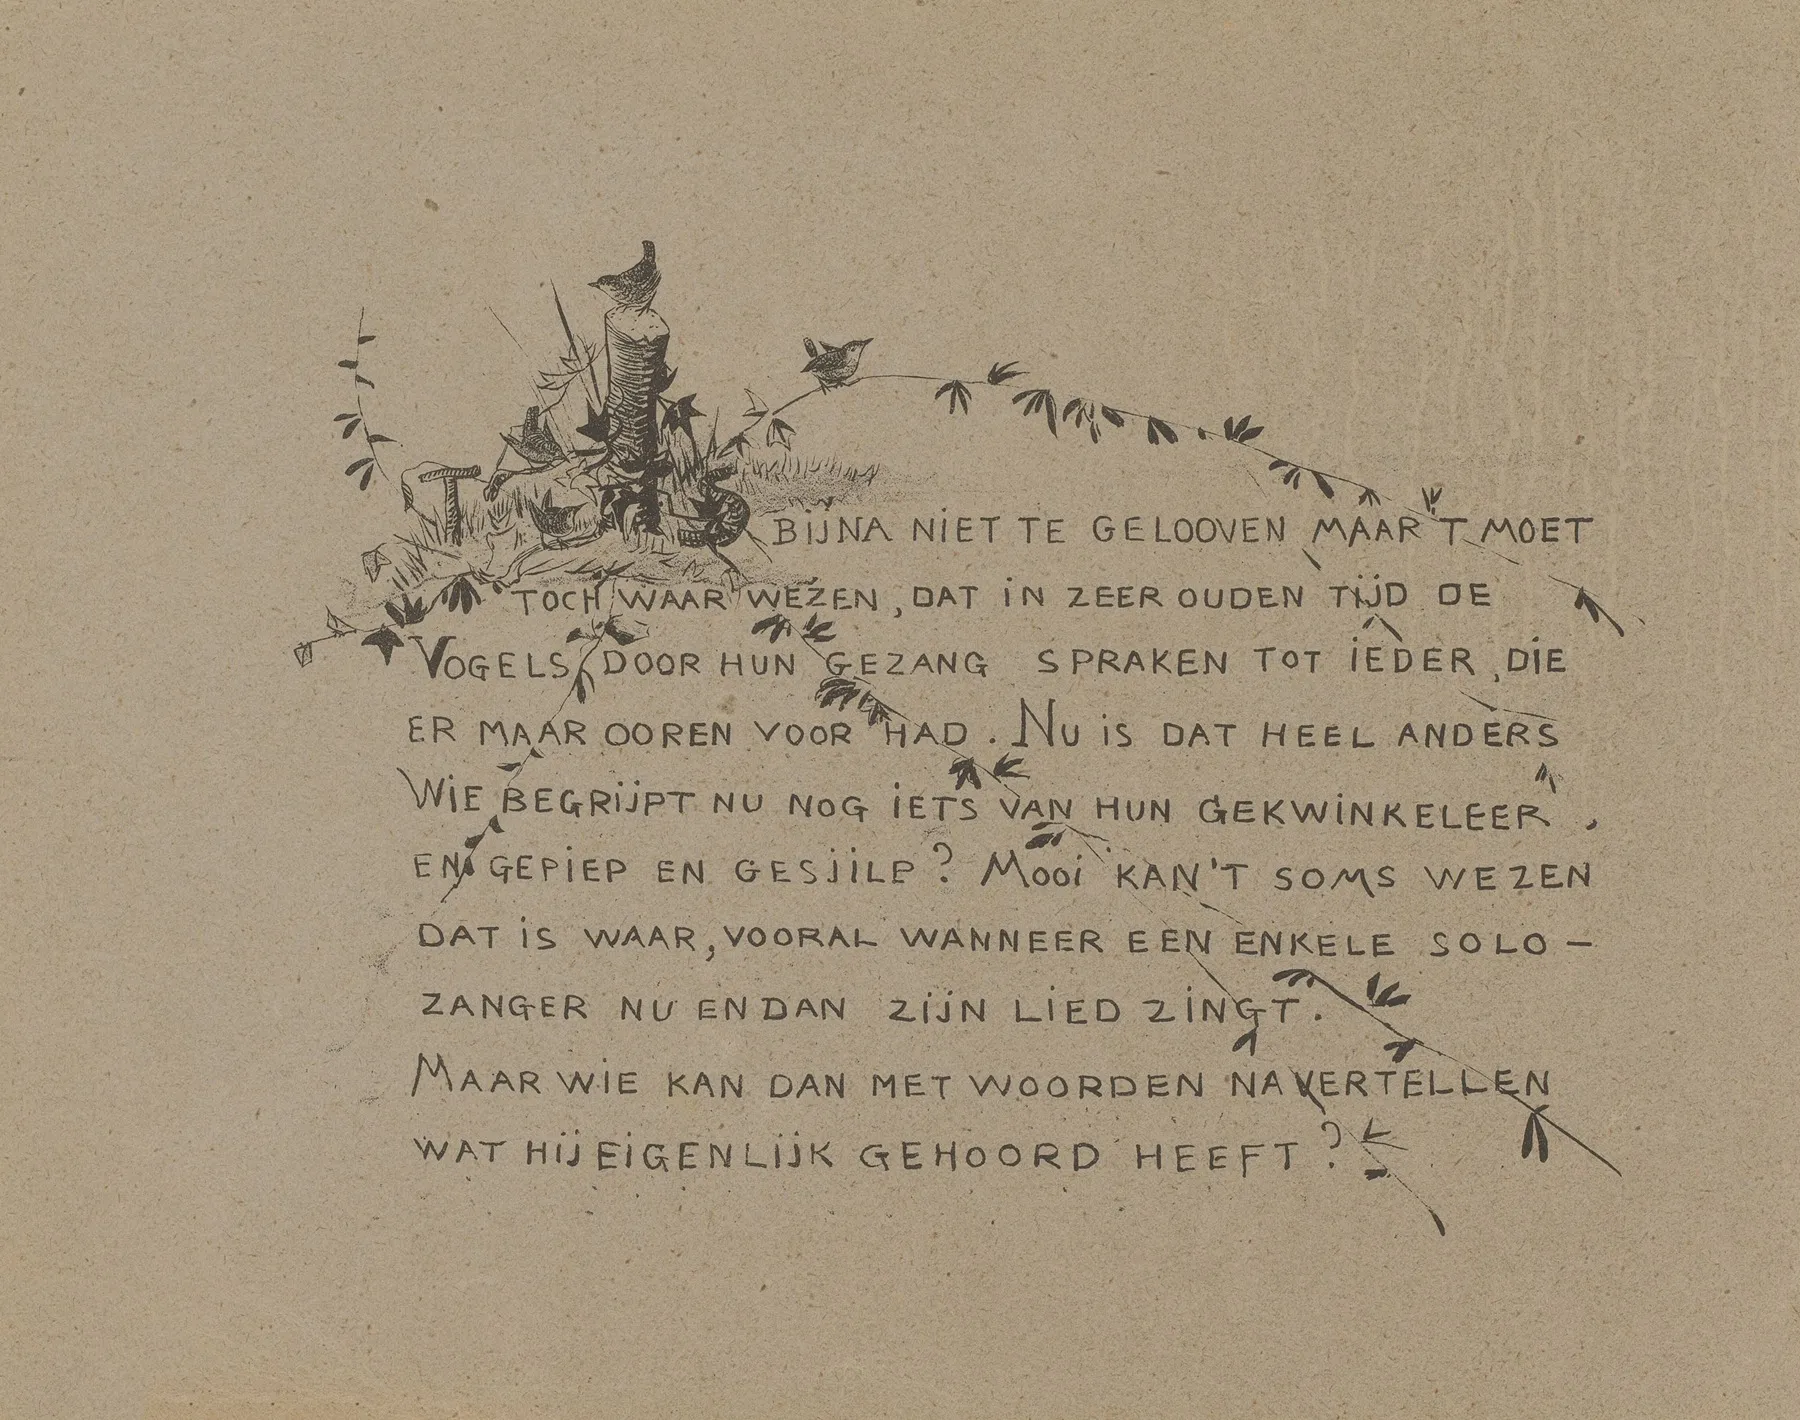 'T IS BIJNA NIET TE GELOOVEN MAAR 'T MOET
TOCH WAAR WEZEN, DAT IN ZEER OUDEN TIJD DE
VOGELS, DOOR HUN GEZANG SPRAKEN TOT IEDER, DIE
ER MAAR OOREN VOOR HAD. NU IS DAT HEEL ANDERS
WIE BEGRIJPT NU NOG IETS VAN HUN GEKWINKELEER,
EN GEPIEP EN GESJILP? MOOI KAN'T SOMS WEZEN
DAT IS WAAR, VOORAL WANNEER EEN ENKELE SOLO-
ZANGER NU EN DAN ZIJN LIED ZINGT.
MAAR WIE KAN DAN MET WOORDEN NAVERTELLEN
WAT HIJ EIGENLIJK GEHOORD HEEFT?